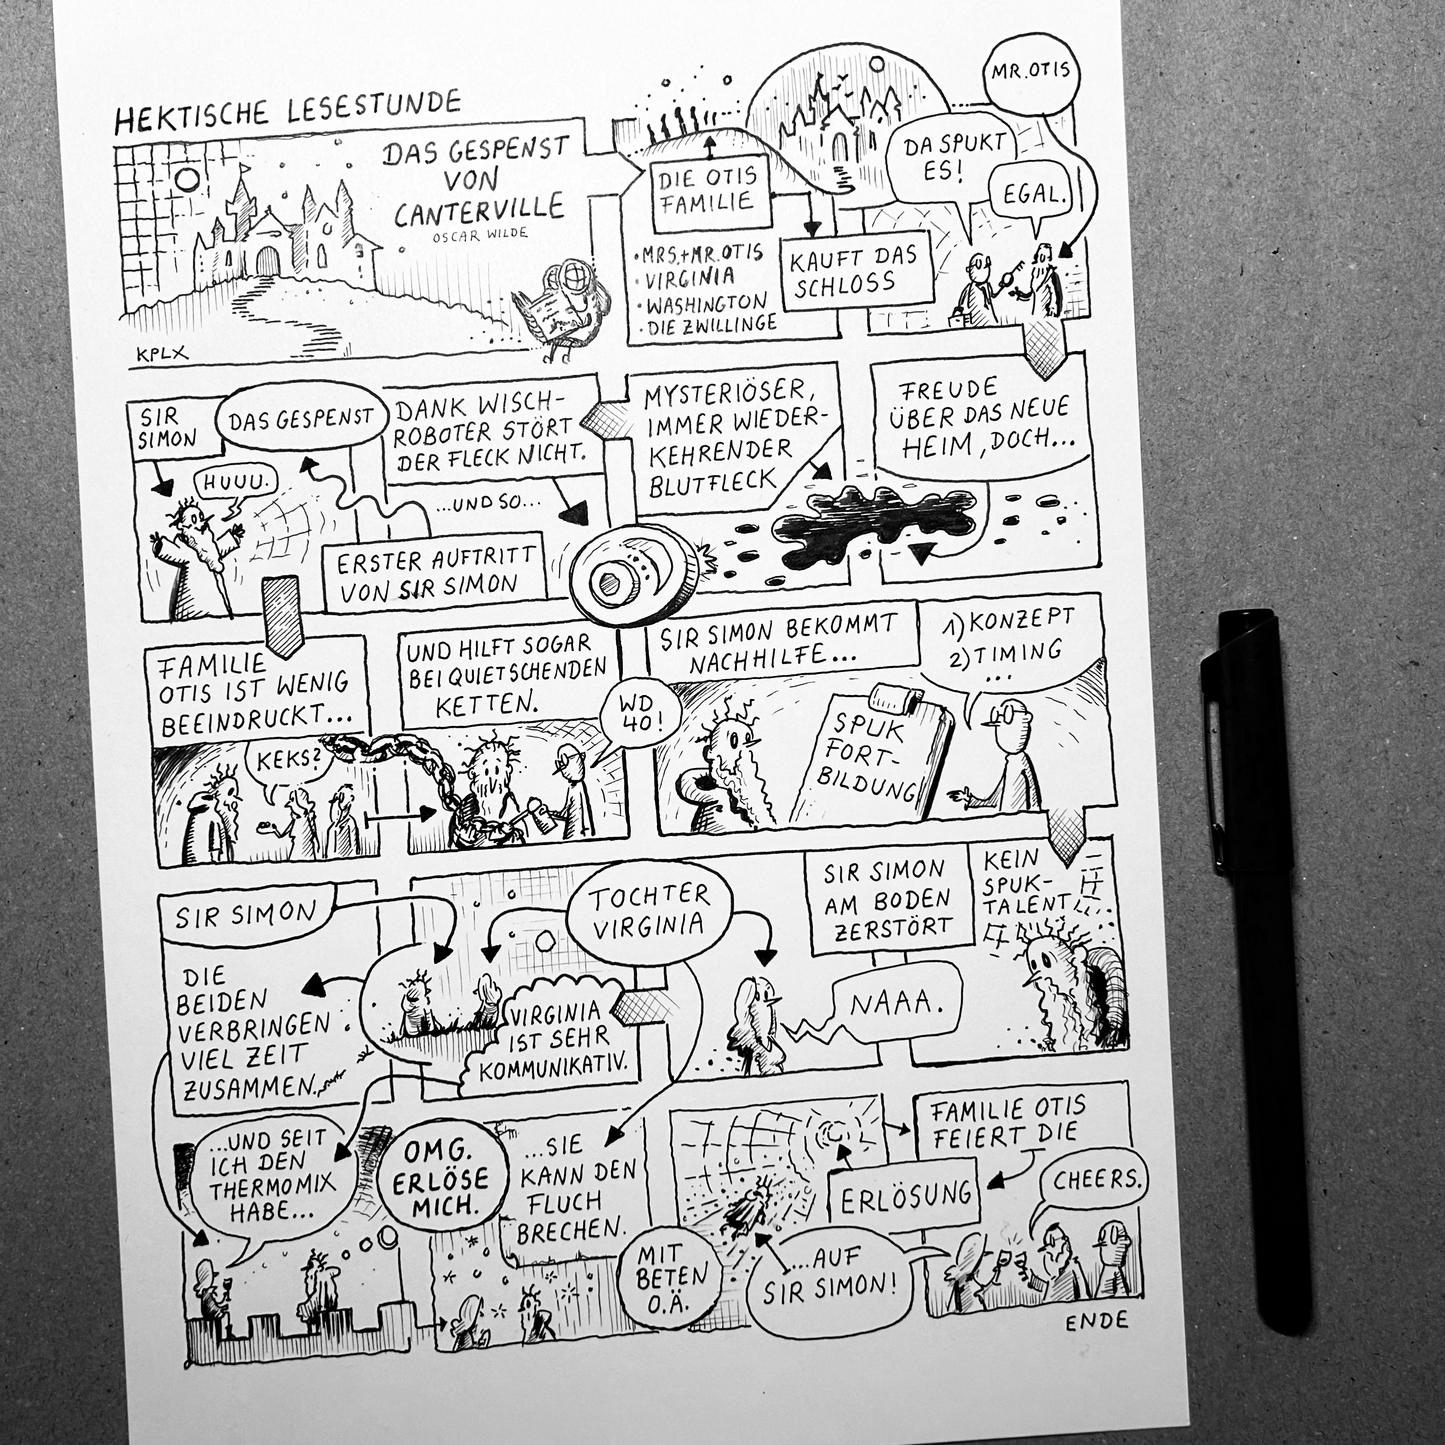 HEKTISCHE LESESTUNDE
DAS GESPENST
VON
CANTERVILLE
OSCAR WILDE
KPLX
DIE OTIS
FAMILIE
• MRS.+MR. OTIS
• VIRGINIA
• WASHINGTON
• DIE ZWILLINGE
KAUFT DAS
SCHLOSS
DA SPUKT
ES!
EGAL.
MR. OTIS
FREUDE
ÜBER DAS NEUE
HEIM, DOCH...
MYSTERIÖSER,
IMMER WIEDER-
KEHRENDER
BLUTFLECK
DANK WISCH-
ROBOTER STÖRT
DER FLECK NICHT.
...UND SO...
ERSTER AUFTRITT
VON SIR SIMON
DAS GESPENST
SIR
SIMON
HUUU.
FAMILIE
OTIS IST WENIG
BEEINDRUCKT...
KEKS?
UND HILFT SOGAR
BEI QUIETSCHENDEN
KETTEN.
WD
40!
SIR SIMON BEKOMMT
NACHHILFE...
1) KONZEPT
2) TIMING
...
SPUK
FORT-
BILDUNG
KEIN
SPUK-
TALENT
SIR SIMON
AM BODEN
ZERSTÖRT
NAAA.
TOCHTER
VIRGINIA
VIRGINIA
IST SEHR
KOMMUNIKATIV.
SIR SIMON
DIE
BEIDEN
VERBRINGEN
VIEL ZEIT
ZUSAMMEN.
...UND SEIT
ICH DEN
THERMOMIX
HABE...
OMG.
ERLÖSE
MICH.
...SIE
KANN DEN
FLUCH
BRECHEN.
MIT
BETEN
O.Ä.
ERLÖSUNG
FAMILIE OTIS
FEIERT DIE
...AUF
SIR SIMON!
CHEERS.
ENDE